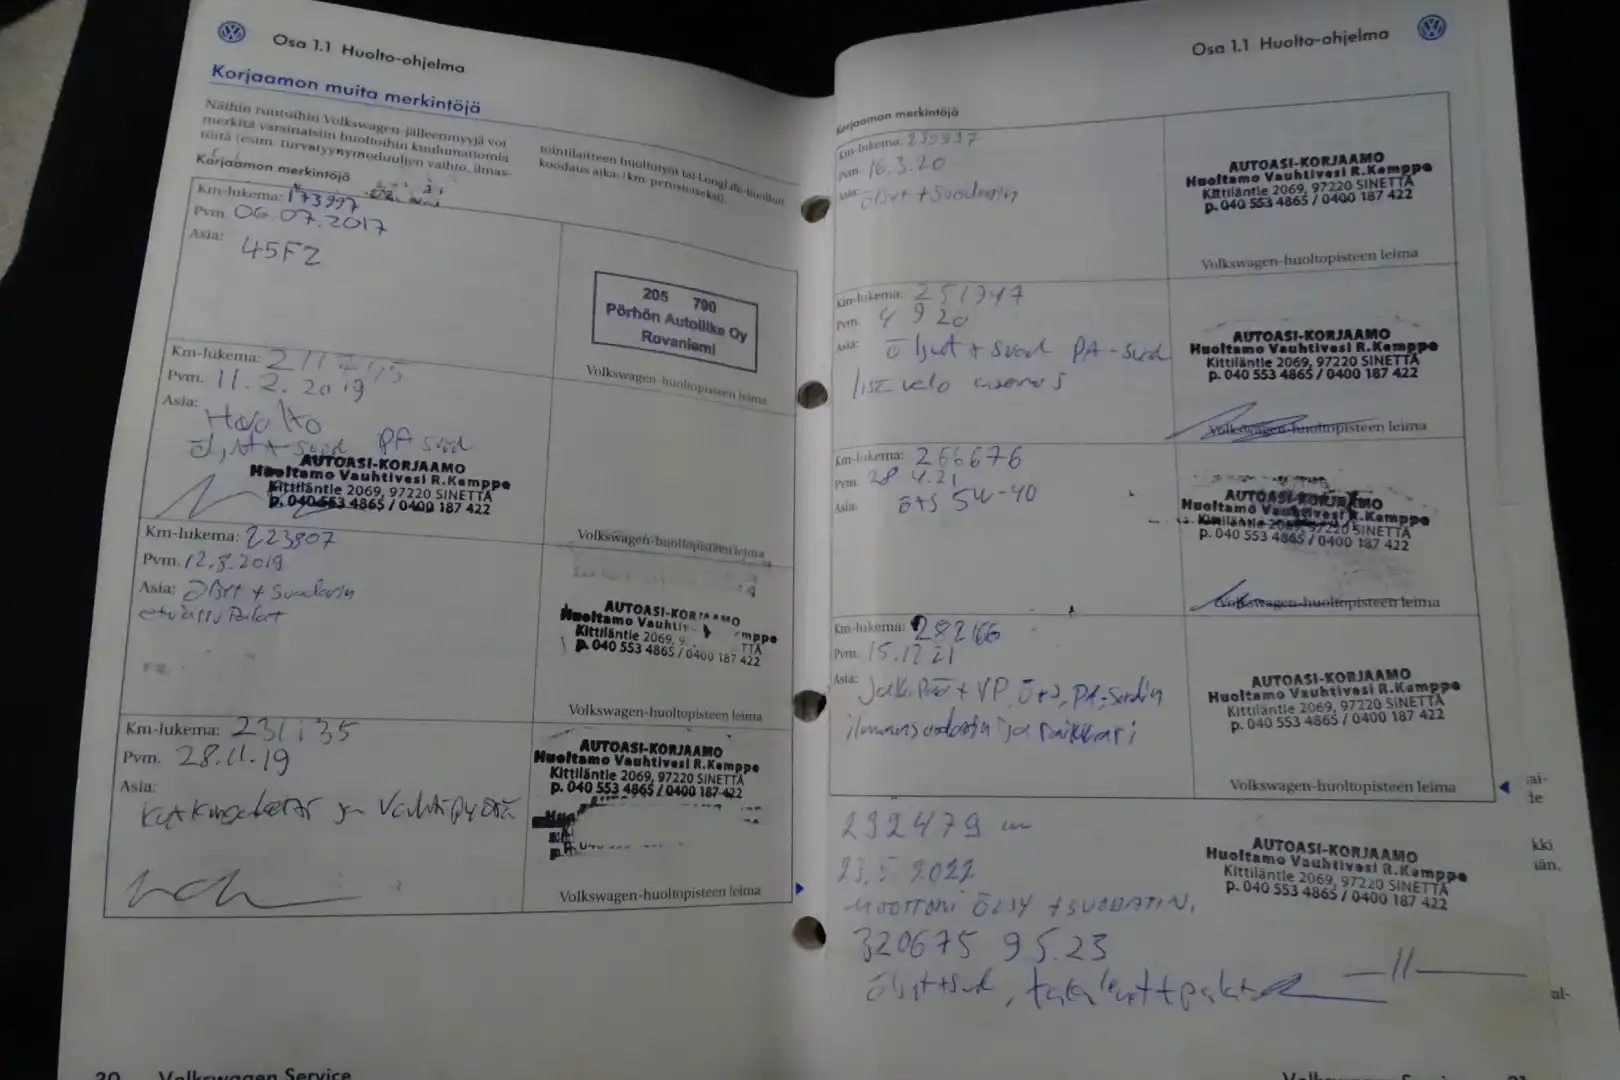 Osa 1.1 Huolto-ohjelma
Korjaamon muita merkintöjä
Näihin ruutuihin Volkswagen-jälleenmyyjä voi
merkitä varsinaisiin huoltoihin kuulumattomia
töitä (esim. turvatyynymoduulien vaihto, ilmas-
tointilaitteen huoltotyöt tai LongLife-huollon
koodaus aika-/km-perusteiseksi).
Korjaamon merkintöjä
Km-lukema: 173997
Pvm. 06.07.2017
Asia: 45FZ
205 790
Pörhön Autoliike Oy
Rovaniemi
Volkswagen-huoltopisteen leima
Km-lukema:
Pvm. 11.2.2019
Asia: Huolto
PA suod
AUTOASI-KORJAAMO
Huoltamo Vauhtivesi R.Kemppe
Kittiläntie 2069, 97220 SINETTÄ
p. 040 553 4865 / 0400 187 422
Volkswagen-huoltopisteen leima
Km-lukema: 223807
Pvm. 12.8.2019
Asia: Öljyt + Suodatin
AUTOASI-KORJAAMO
Huoltamo Vauhtiv mppe
Kittiläntie 2069, 9 TTÄ
p. 040 553 4865 / 0400 187 422
Volkswagen-huoltopisteen leima
Km-lukema: 231135
Pvm. 28.11.19
Asia:
ja
AUTOASI-KORJAAMO
Huoltamo Vauhtivesi R.Kemppe
Kittiläntie 2069, 97220 SINETTÄ
p. 040 553 4865 / 0400 187 422
Volkswagen-huoltopisteen leima
20 Volkswagen Service
Osa 1.1 Huolto-ohjelma
Korjaamon merkintöjä
Km-lukema: 239937
Pvm. 16.3.20
Asia: Öljyt + Suodatin
AUTOASI-KORJAAMO
Huoltamo Vauhtivesi R.Kemppe
Kittiläntie 2069, 97220 SINETTÄ
p. 040 553 4865 / 0400 187 422
Volkswagen-huoltopisteen leima
Km-lukema: 251747
Pvm. 4 9 20
Asia: Öljyt + suod PA-suod
AUTOASI-KORJAAMO
Huoltamo Vauhtivesi R.Kemppe
Kittiläntie 2069, 97220 SINETTÄ
p. 040 553 4865 / 0400 187 422
Volkswagen-huoltopisteen leima
Km-lukema: 266676
Pvm. 28 4.21
Asia: Ö+S 5W-40
AUTOASI-KORJAAMO
Huoltamo Vauhtivesi R.Kemppe
Kittiläntie 2069, 97220 SINETTÄ
p. 040 553 4865 / 0400 187 422
Volkswagen-huoltopisteen leima
Km-lukema: 282166
Pvm. 15.12 21
Asia: Jakopää + VP, Ö+S, PA-Suodin
ilmansuodatin ja raikkari
AUTOASI-KORJAAMO
Huoltamo Vauhtivesi R.Kemppe
Kittiläntie 2069, 97220 SINETTÄ
p. 040 553 4865 / 0400 187 422
Volkswagen-huoltopisteen leima
292479
23.5.2022
MOOTTORI ÖLJY + SUODATIN.
AUTOASI-KORJAAMO
Huoltamo Vauhtivesi R.Kemppe
Kittiläntie 2069, 97220 SINETTÄ
p. 040 553 4865 / 0400 187 422
320675 9 5.23
Öljyt+suod, takalevyt+palat
—11—
ai-
te
kki
iän.
al-
Volkswagen Service 21